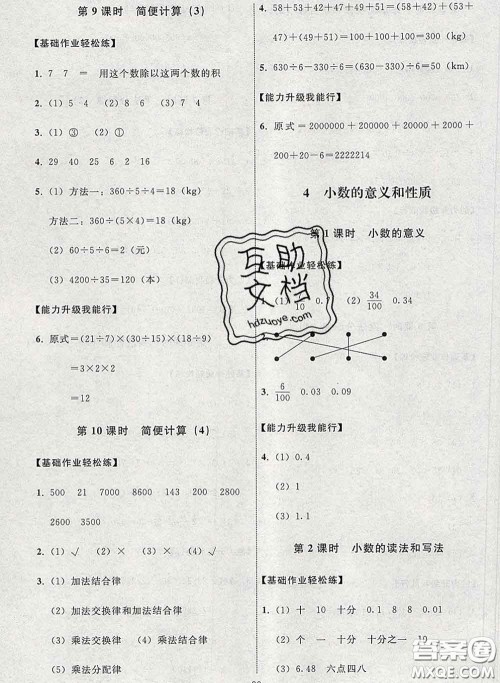 第 9 课时　简便计算（3）
【基础作业轻松练】
1. 7　7　=　用这个数除以这两个数的积
2. （1）5　4　（2）8　6　（3）7　4
3. （1）③　（2）①
4. 29　40　25　2　16
5. （1）方法一：360÷5÷4＝18（kg）
方法二：360÷(5×4)＝18(kg)
（2）60÷5÷6＝2（元）
（3）4200÷35＝120（本）
【能力升级我能行】
6. 原式＝(21÷7)×(30÷15)×(18÷9)
＝3×2×2
＝12
第 10 课时　简便计算（4）
【基础作业轻松练】
1. 500　21　7000　8600　143　200　2800
3600　2700
2. （1）√　（2）×　（3）×　（4）√
3. （1）加法结合律
（2）加法交换律和加法结合律
（3）乘法交换律　（4）乘法结合律
（5）乘法分配律
4. 58＋53＋42＋47＋51＋49＝(58＋42)＋(53＋
47)＋(51＋49)＝100＋100＋100＝300(kg)
5. 630÷6－330÷6＝(630－330)÷6＝50（km）
【能力升级我能行】
6. 原式＝2000000＋200000＋20000＋2000＋
200＋20－6＝2222214
4　小数的意义和性质
第 1 课时　小数的意义
【基础作业轻松练】
1. （1）/10　0.7　（2）34/100　0.34
3. 6/100　0.03　0.09
【能力升级我能行】
4. （1）0.4
（2）1
（3）1.1
第 2 课时　小数的读法和写法
【基础作业轻松练】
1. （1）十　10　十分　0.1　8　8　0.01
（2）个　一　十分　十分之一　10
（3）6.48　六点四八
互助
文档
hdzuoye.com
答案圈
MXQE.COM